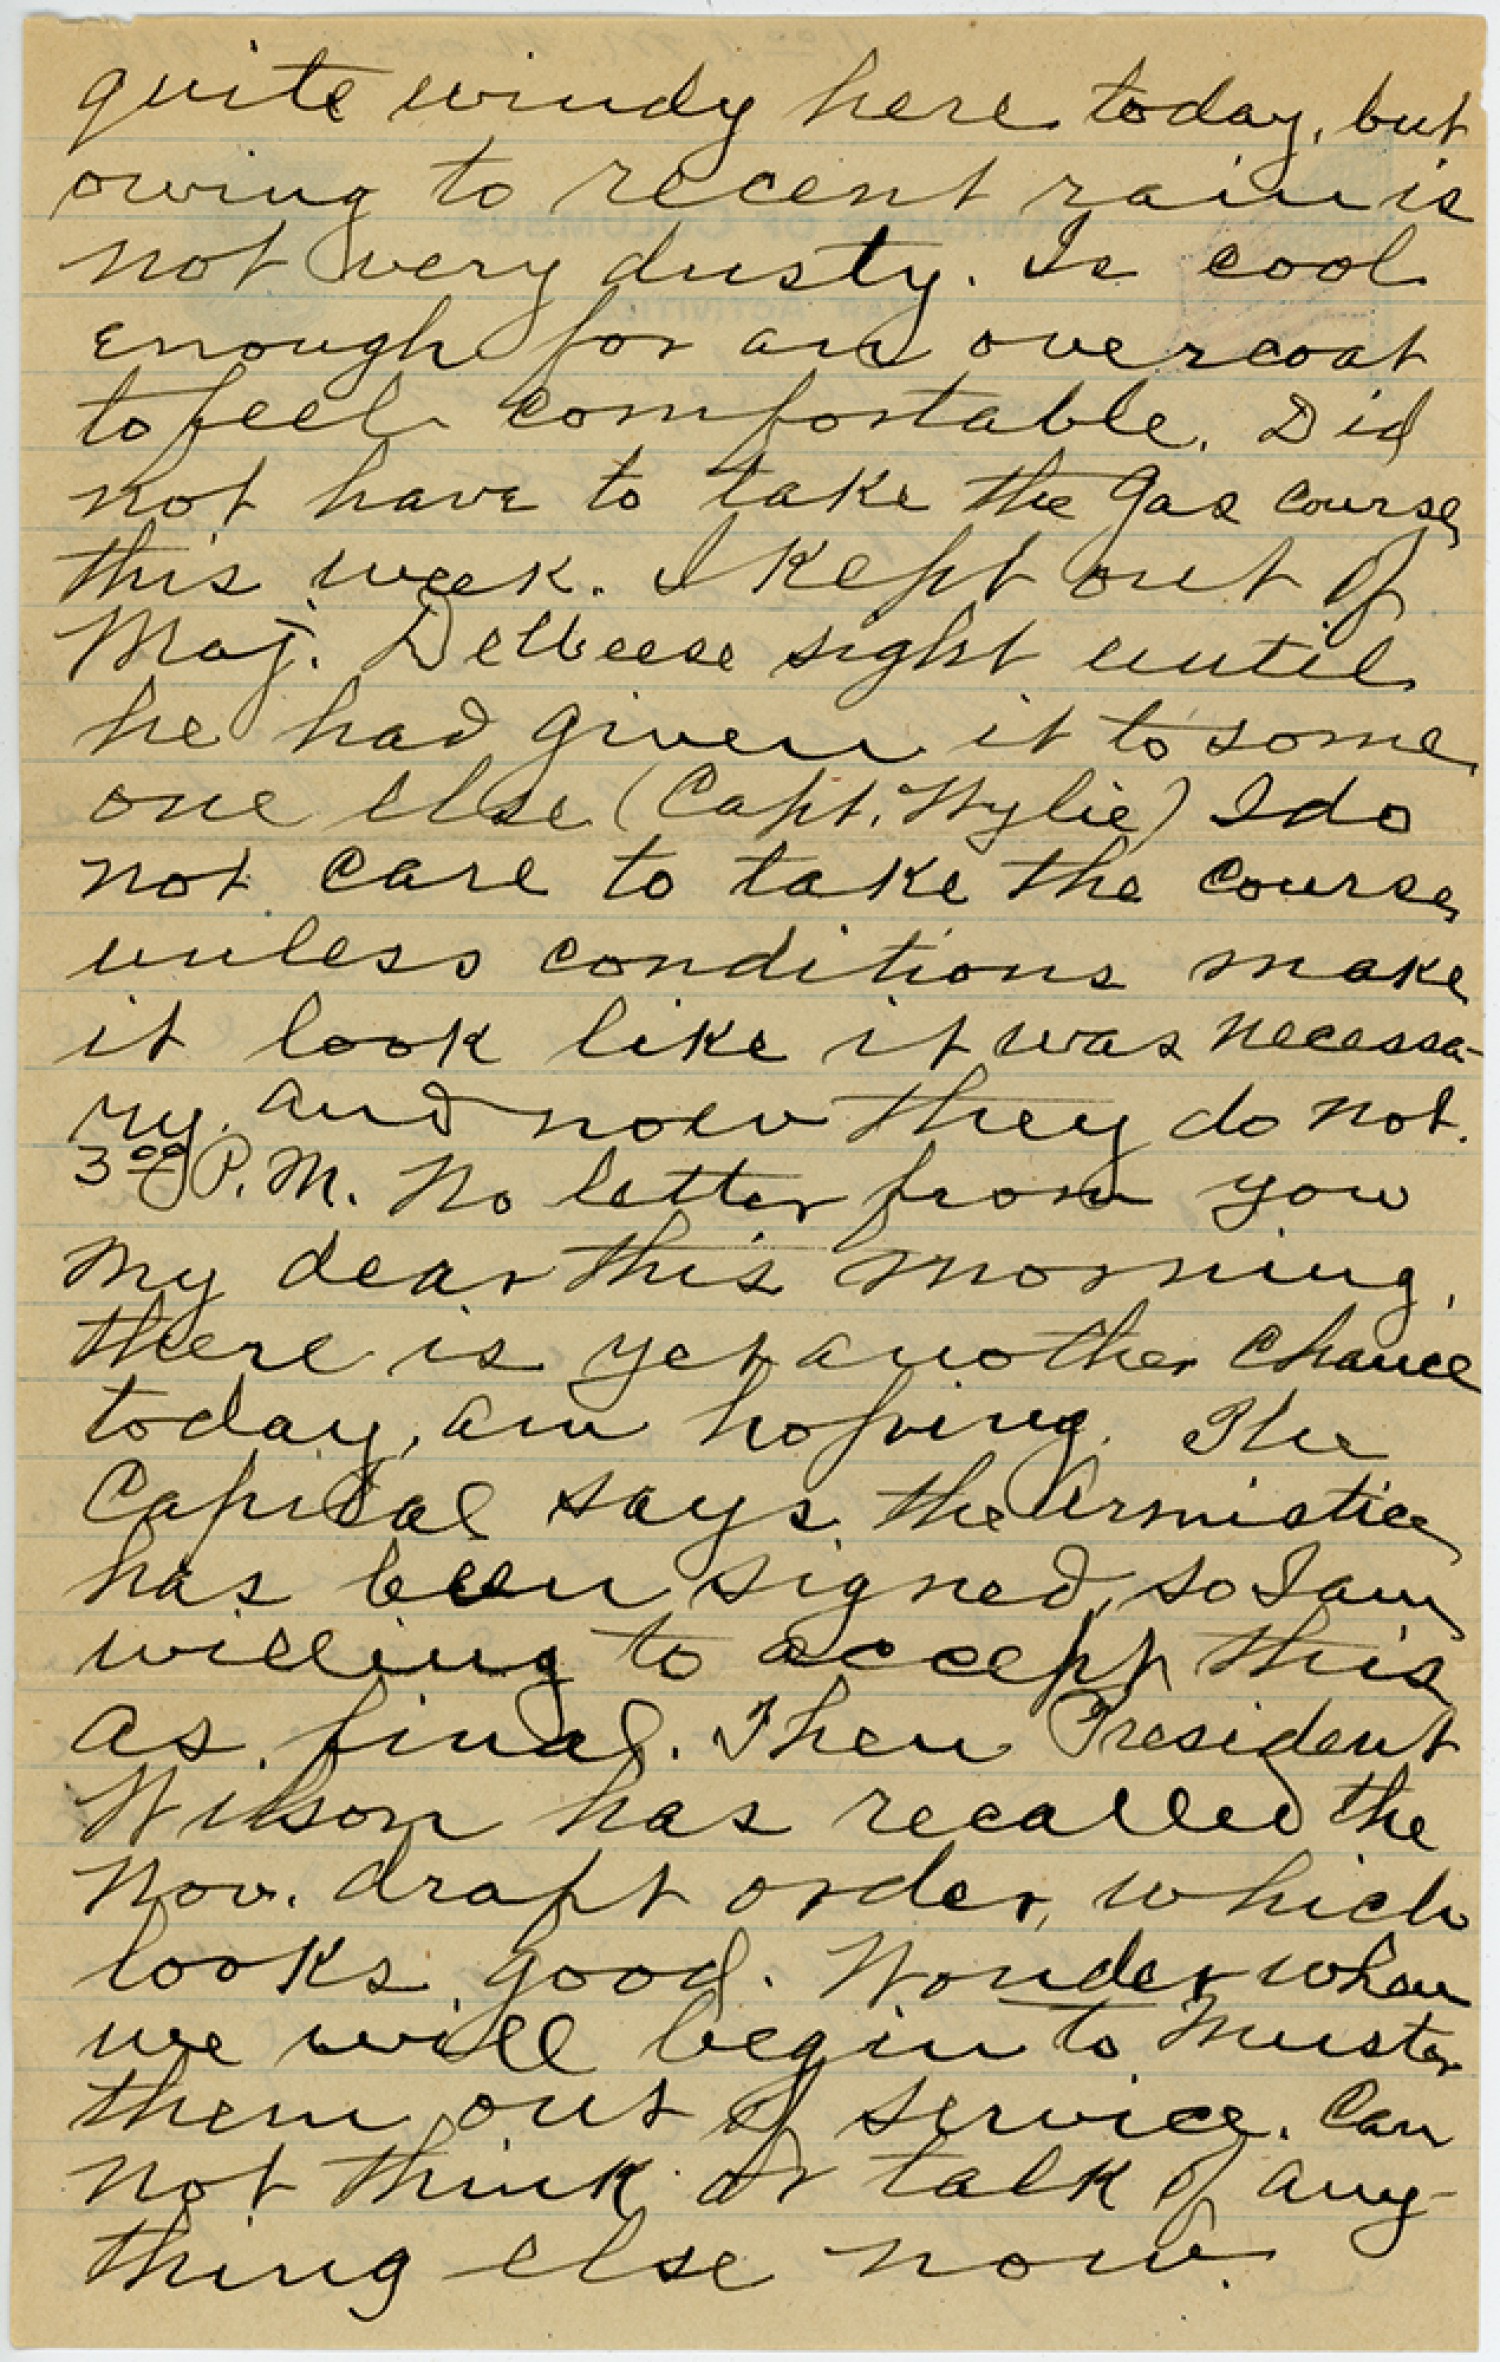 quite windy here today, but
owing to recent rain is
not very dusty. Is cool
enough for an overcoat
to feel comfortable. Did
not have to take the Gas course
this week. I kept out of
Maj. DeWeese sight until
he had given it to some
one else (Capt. Wylie) I do
not care to take the course
unless conditions make
it look like it was necessa-
ry. and now they do not.
3⁰⁰ P.M. No letter from you
my dear this morning,
there is yet another chance
today, am hoping. The
Capital says the Armistice
has been signed, so I am
willing to accept this
as final. Then President
Wilson has recalled the
Nov. draft order, which
looks good. Wonder when
we will begin to muster
them out of service. Can
not think or talk of any-
thing else now.
KNIGHTS OF COLUMBUS
WAR ACTIVITIES